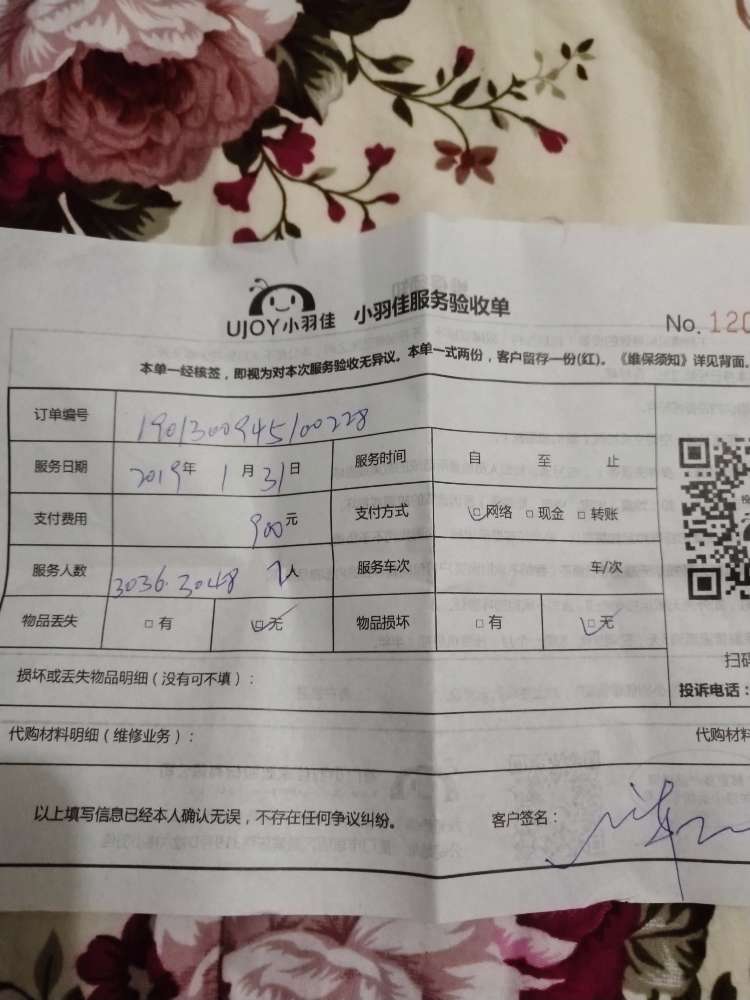 UJOY小羽佳 小羽佳服务验收单
No. 120
本单一经核签，即视为对本次服务验收无异议。本单一式两份，客户留存一份(红)。《维保须知》详见背面。
订单编号 1901300945100228
服务日期 2019年 1月31日 服务时间 自 至 止
支付费用 900元 支付方式 □网络 □现金 □转账
服务人数 3036.3048 2人 服务车次 车/次
物品丢失 □有 □无 物品损坏 □有 □无
扫码
损坏或丢失物品明细（没有可不填）：
投诉电话：
代购材料明细（维修业务）： 代购材料
以上填写信息已经本人确认无误，不存在任何争议纠纷。 客户签名：